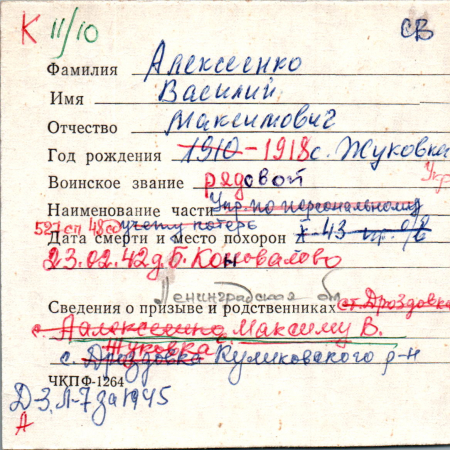 К 11/10 СВ
Фамилия Алексеенко
Имя Василий
Отчество Максимович
Год рождения 1910 - 1918 с. Жуковка
Воинское звание рядовой Укр
Наименование части Упр. по персональному
527 сп 48 сд учету потерь
Дата смерти и место похорон X-43
23.02.42 д. Б. Коновалово
Ленинградская обл
Сведения о призыве и родственниках ст. Дроздовка
Максиму В.
Жуковка
с. Дроздовка Куликовского р-н
ЧКПФ-1264
Д-3, Л-7 за 1945
А